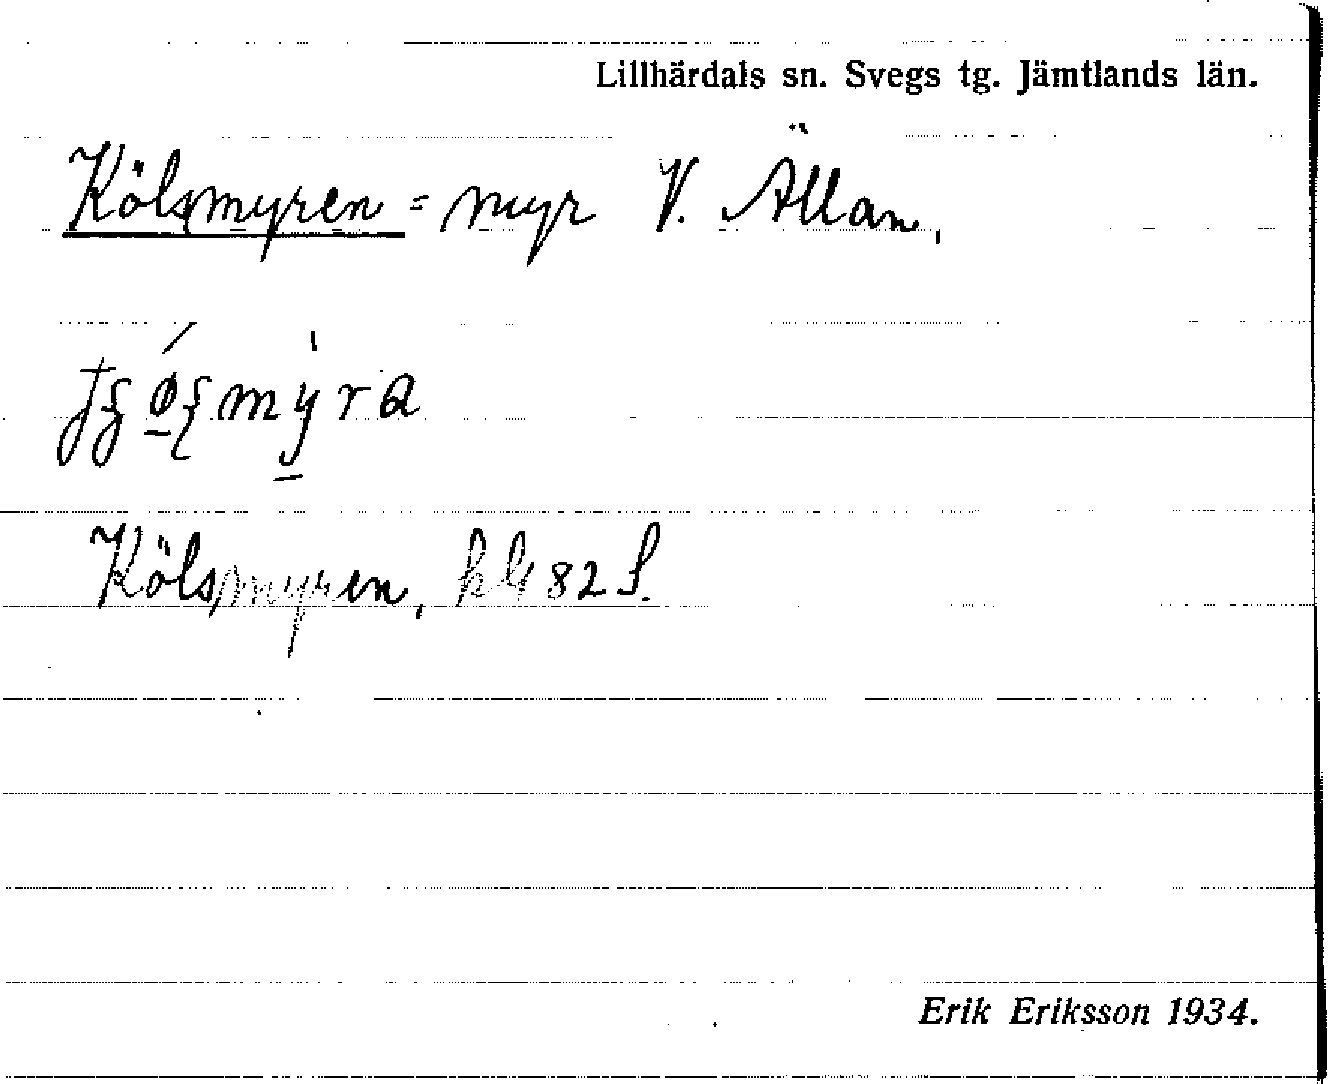 Lillhärdals sn. Svegs tg. Jämtlands län.
Kölsmyren = myr V. Ällan,
Kölsmyren, kbl 82 S.
Erik Eriksson 1934.